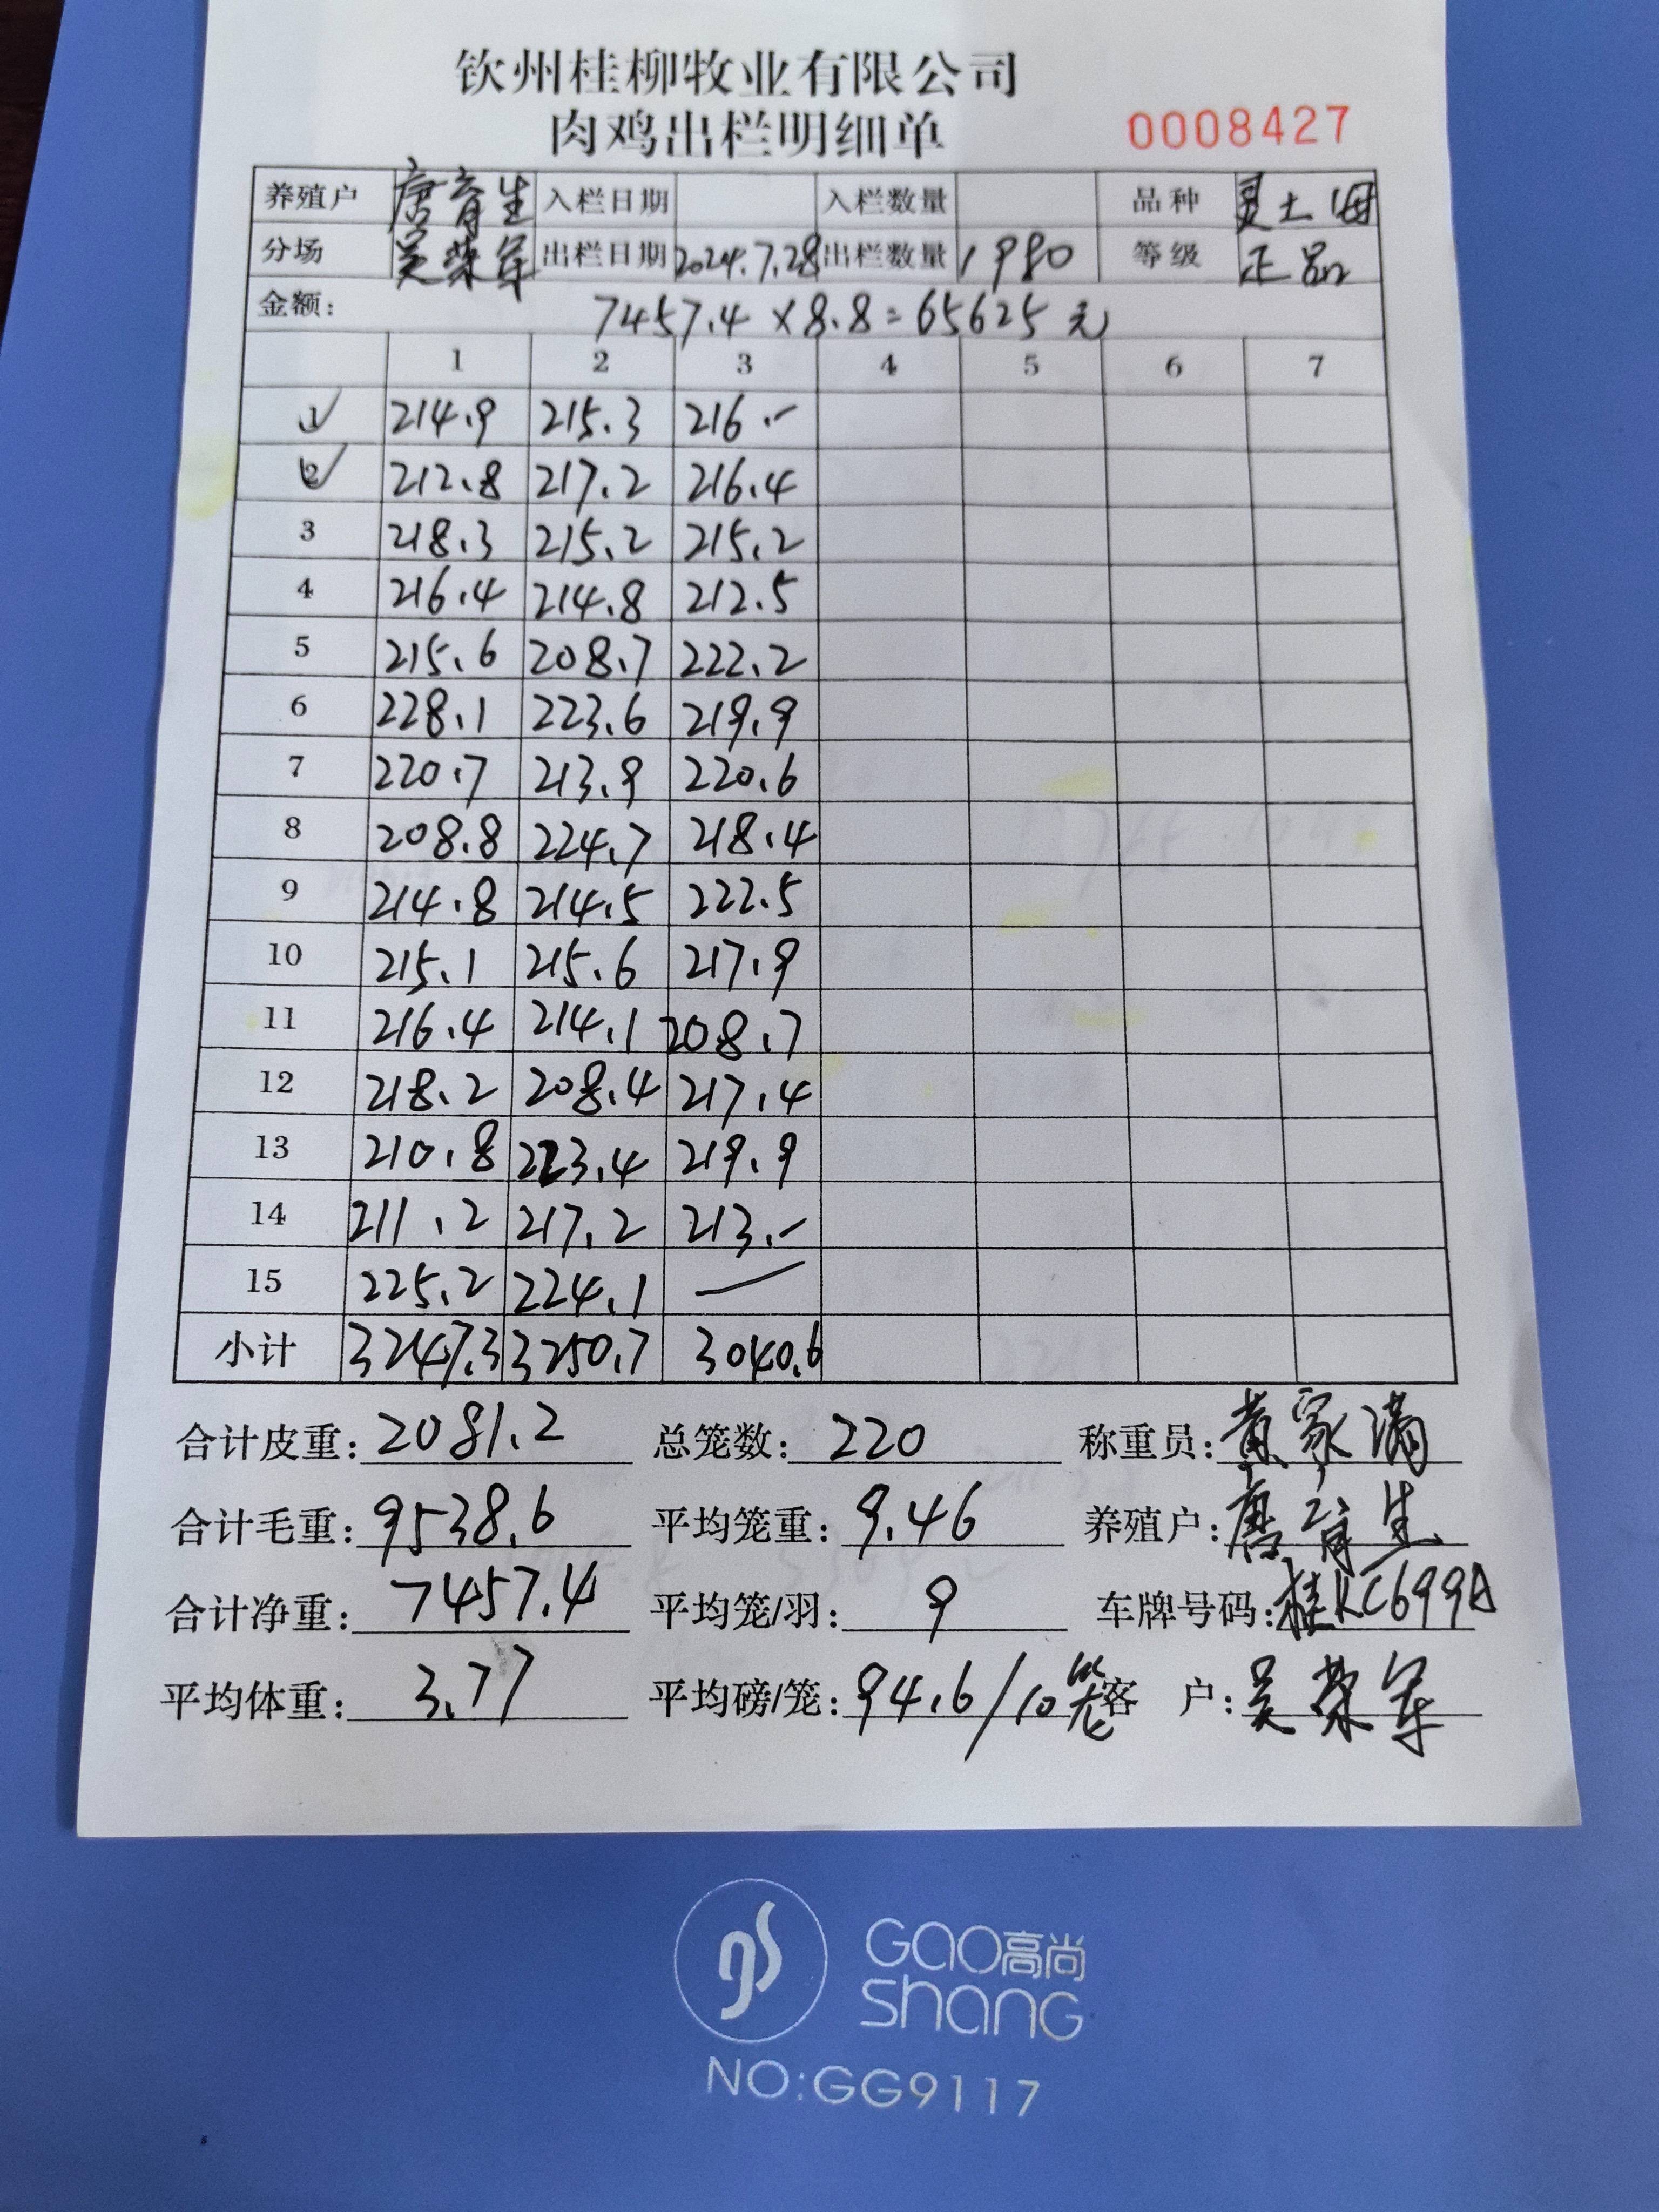 钦州桂柳牧业有限公司
肉鸡出栏明细单 0008427
养殖户 唐育生 入栏日期 入栏数量 品种 灵土母
分场 吴荣军 出栏日期 2024.7.28 出栏数量 1980 等级 正品
金额: 7457.4 ×8.8=65625 元
1 2 3 4 5 6 7
1 214.9 215.3 216.-
2 212.8 217.2 216.4
3 218.3 215.2 215.2
4 216.4 214.8 212.5
5 215.6 208.7 222.2
6 228.1 223.6 219.9
7 220.7 213.9 220.6
8 208.8 224.7 218.4
9 214.8 214.5 222.5
10 215.1 215.6 217.9
11 216.4 214.1 208.7
12 218.2 208.4 217.4
13 210.8 223.4 219.9
14 211.2 217.2 213.-
15 225.2 224.1 —
小计 3247.3 3250.7 3040.6
合计皮重: 2081.2 总笼数: 220 称重员: 黄家满
合计毛重: 9538.6 平均笼重: 9.46 养殖户: 唐育生
合计净重: 7457.4 平均笼/羽: 9 车牌号码: 桂KC699A
平均体重: 3.77 平均磅/笼: 94.6/10笼 客 户: 吴荣军
gs GAO高尚
SHANG
NO:GG9117